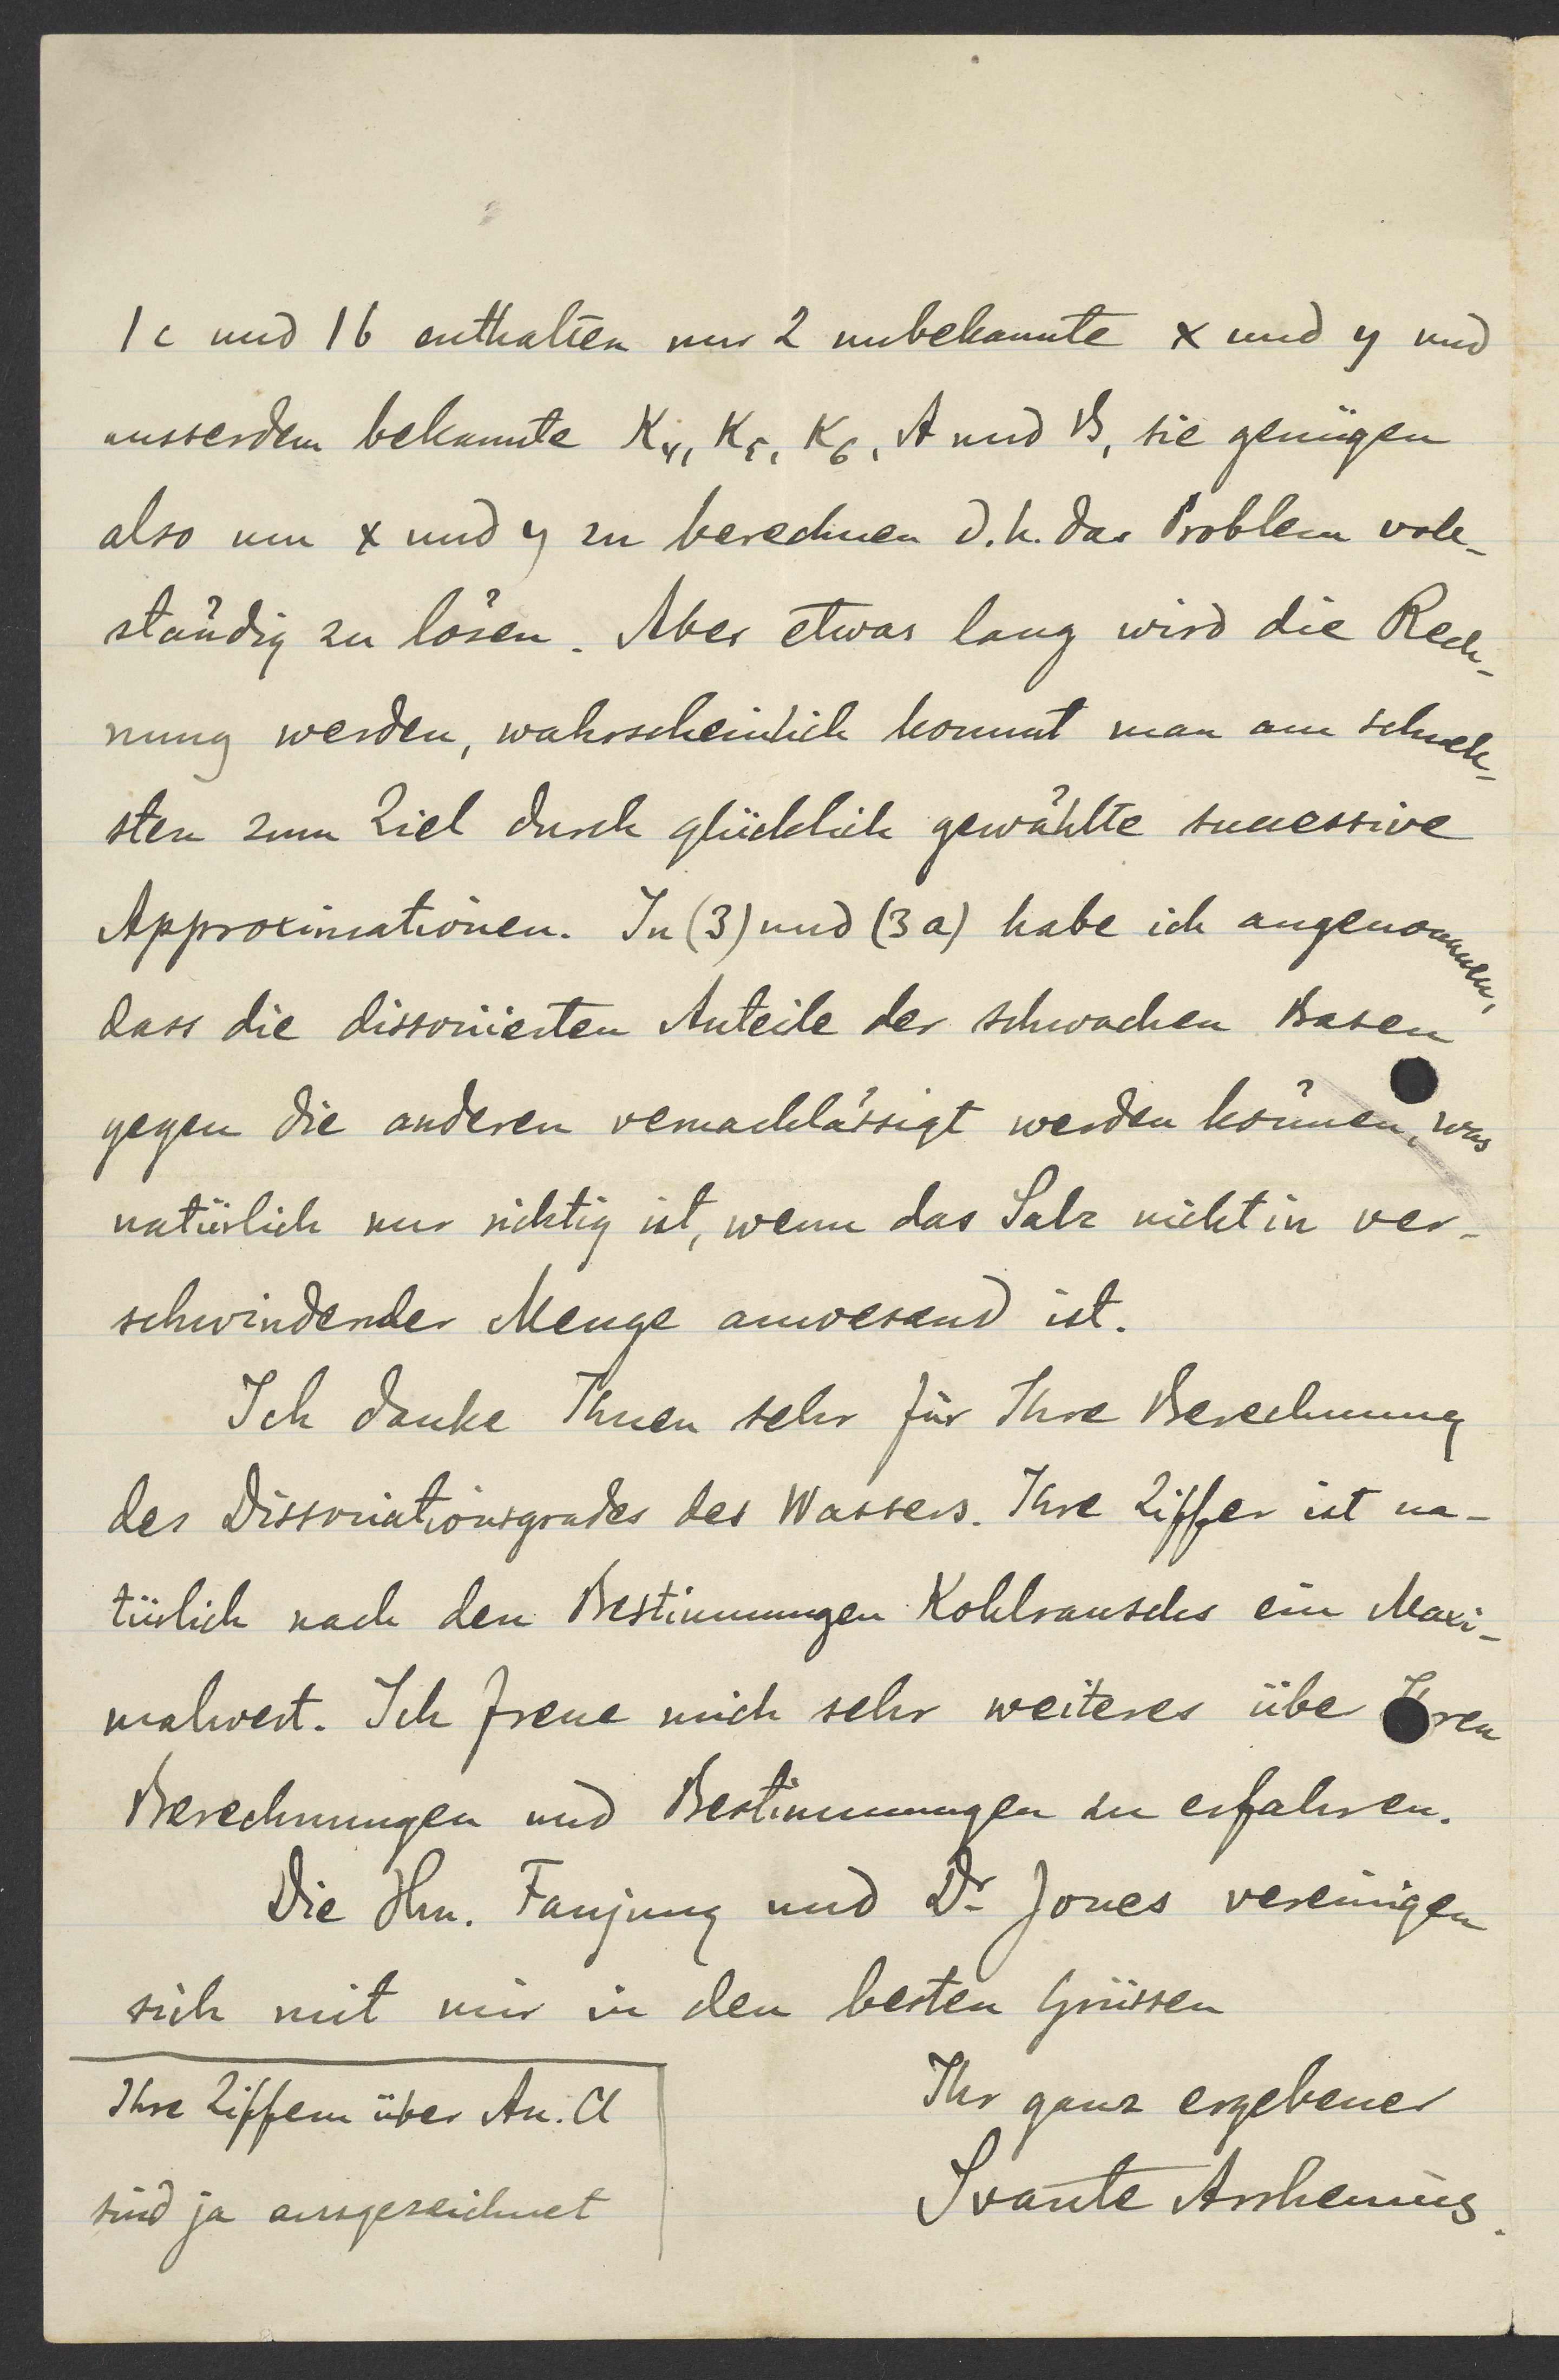 1c und 1b enthalten nur 2 unbekannte x und y und
ausserdem bekannte K₄, K₅, K₆, A und B, sie genügen
also um x und y zu berechnen d.h. das Problem voll-
ständig zu lösen. Aber etwas lang wird die Rech-
nung werden, wahrscheinlich kommt man am schnell-
sten zum Ziel durch glücklich gewählte successive
Approximationen. In (3) und (3a) habe ich angenommen,
dass die dissociierten Anteile der schwachen Basen
gegen die anderen vernachlässigt werden können, was
natürlich nur richtig ist, wenn das Salz nicht in ver-
schwindender Menge anwesend ist.
Ich danke Ihnen sehr für Ihre Berechnung
des Dissociationsgrades des Wassers. Ihre Ziffer ist na-
türlich nach den Bestimmungen Kohlrauschs ein Maxi-
malwert. Ich freue mich sehr weiteres über Ihren
Berechnungen und Bestimmungen zu erfahren.
Die Hrn. Fanjung und Dr Jones vereinigen
sich mit mir in den besten Grüssen
Ihr ganz ergebener
Svante Arrhenius.
Ihre Ziffern über An. Cl
sind ja ausgezeichnet